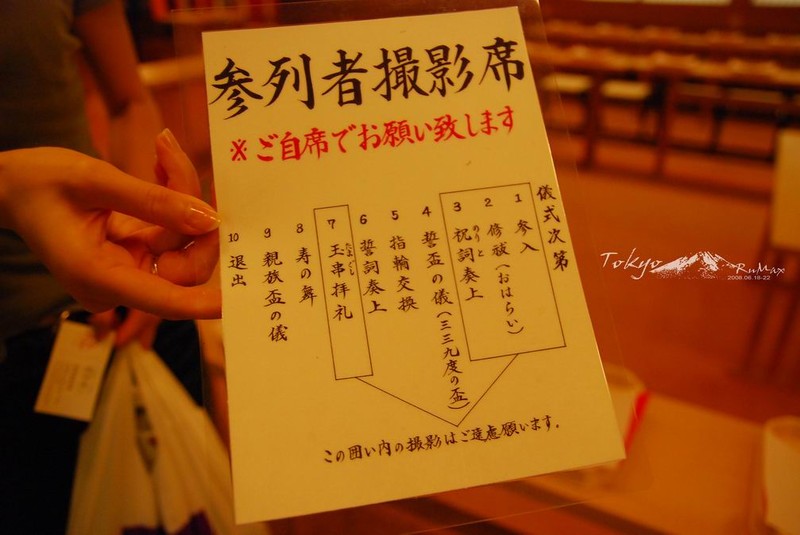 参列者撮影席
※ご自席でお願い致します
儀式次第
1 参入
2 修祓(おはらい)
3 祝詞奏上
のりと
4 誓盃の儀(三三九度の盃)
5 指輪交換
6 誓詞奏上
7 玉串拝礼
たまぐし
8 寿の舞
9 親族盃の儀
10 退出
この囲い内の撮影はご遠慮願います。
Tokyo
RuMax
2008.06.18-22